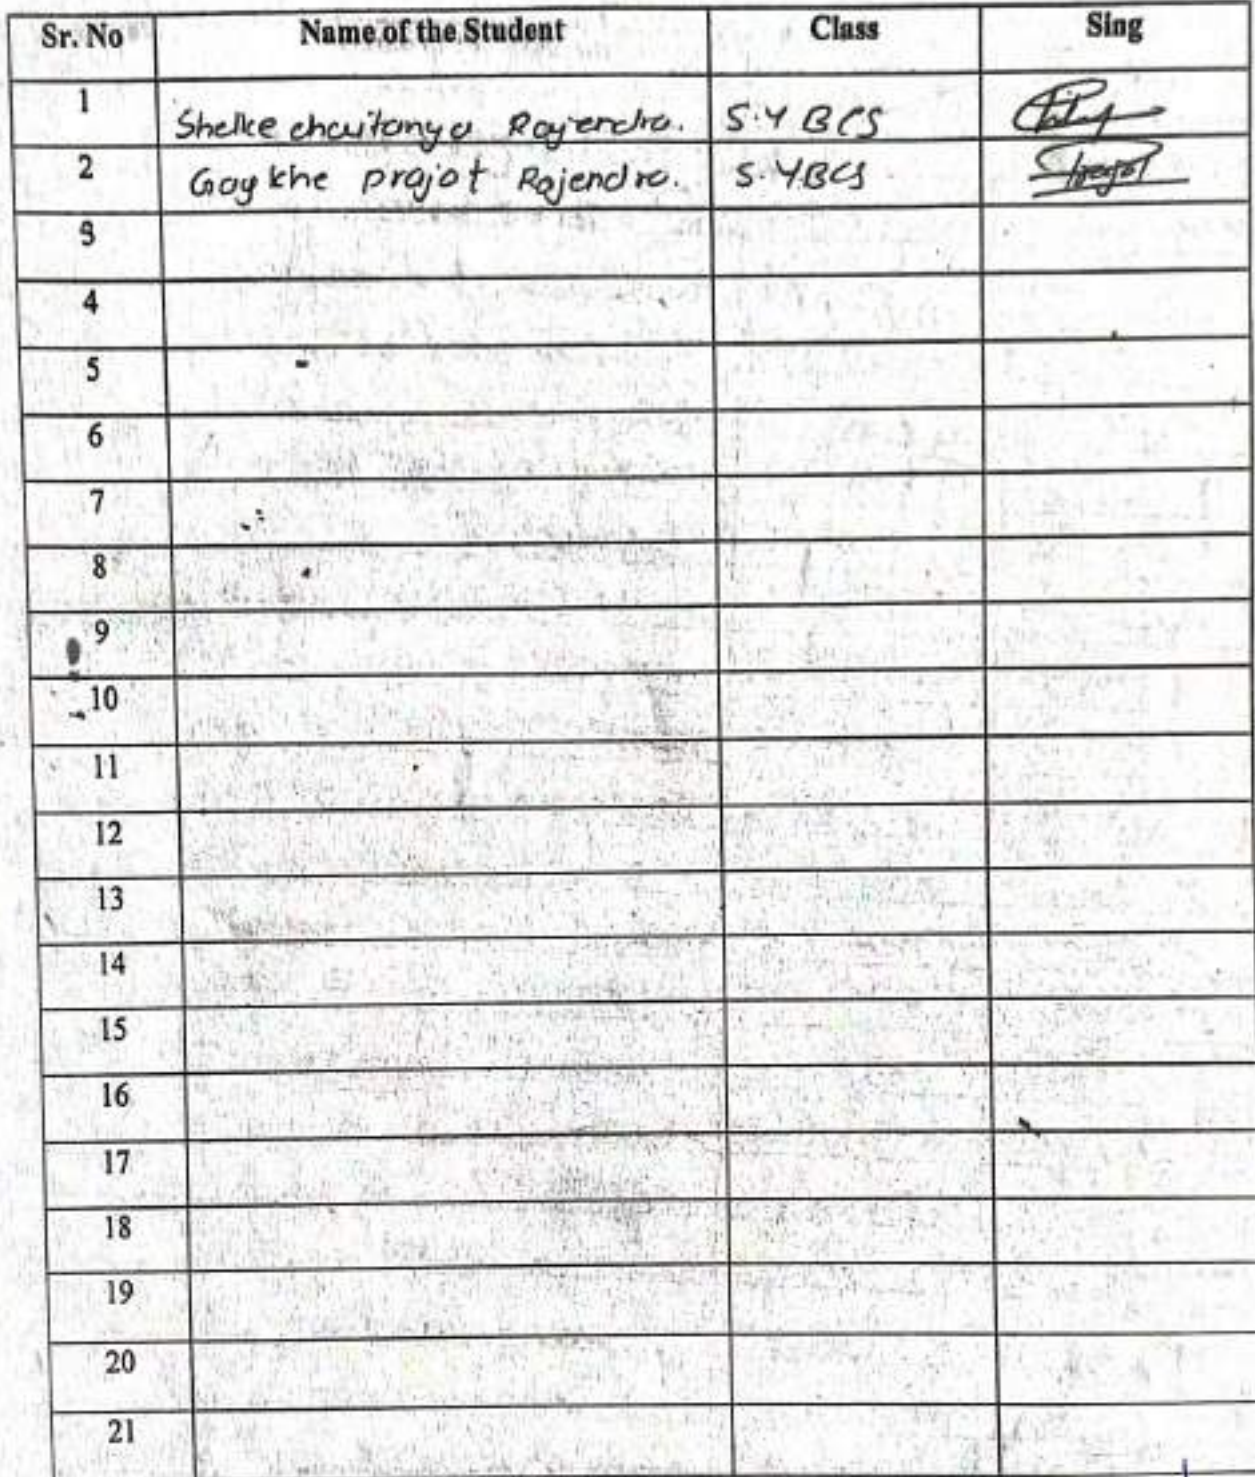 Sr. No Name of the Student Class Sing
1 Shelke chaitanya Rajendra. S.Y BCS
2 Gaykhe prajot Rajendra. S.Y.BCS Prajot
3
4
5
6
7
8
9
10
11
12
13
14
15
16
17
18
19
20
21